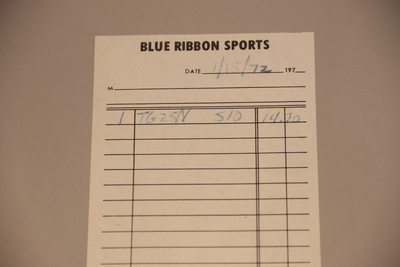 BLUE RIBBON SPORTS
DATE 1/15/72 197
M
1 TG25N S10 14.70